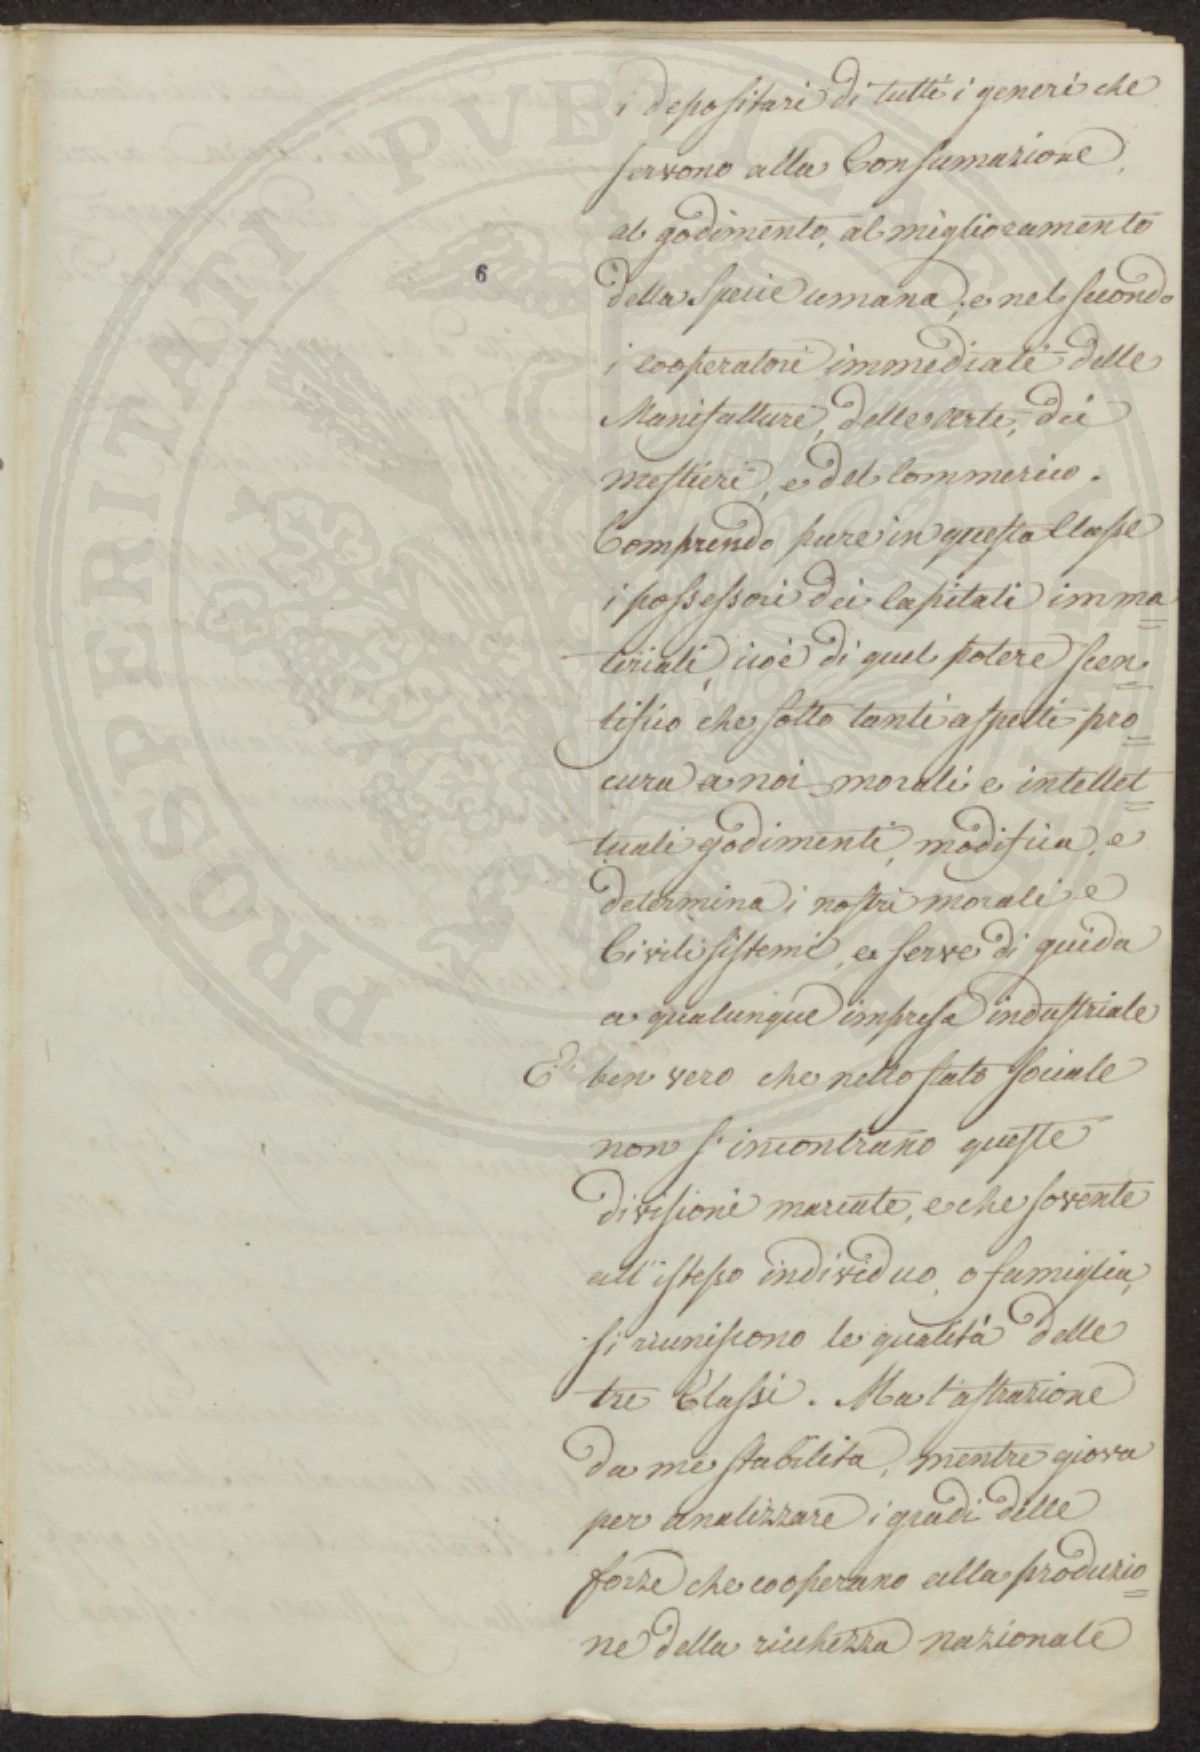 i depositari di tutti i generi che
servono alla Consumazione,
al godimento, al miglioramento
della specie umana; e nel secondo
6
i cooperatori immediati delle
Manifatture, delle Arti, dei
mestieri, e del Commercio.
Comprendo pure in questa Classe
i possessori dei Capitali imma=
teriali, cioè di quel potere scen=
tifico che sotto tanti aspetti pro=
cura a noi morali e intellet=
tuali godimenti, modifica, e
determina i nostri morali e
Civili sistemi, e serve di guida
a qualunque impresa industriale
E' ben vero che nello stato sociale
non s'incontrano queste
divisioni marcate, e che sovente
all'istesso individuo, o famiglia,
si riuniscono le qualità delle
tre Classi. Ma l'astrazione
da me stabilita, mentre giova
per analizzare i gradi delle
forze che cooperano alla produzio=
ne della ricchezza nazionale
PROSPERITATI PUBLICAE